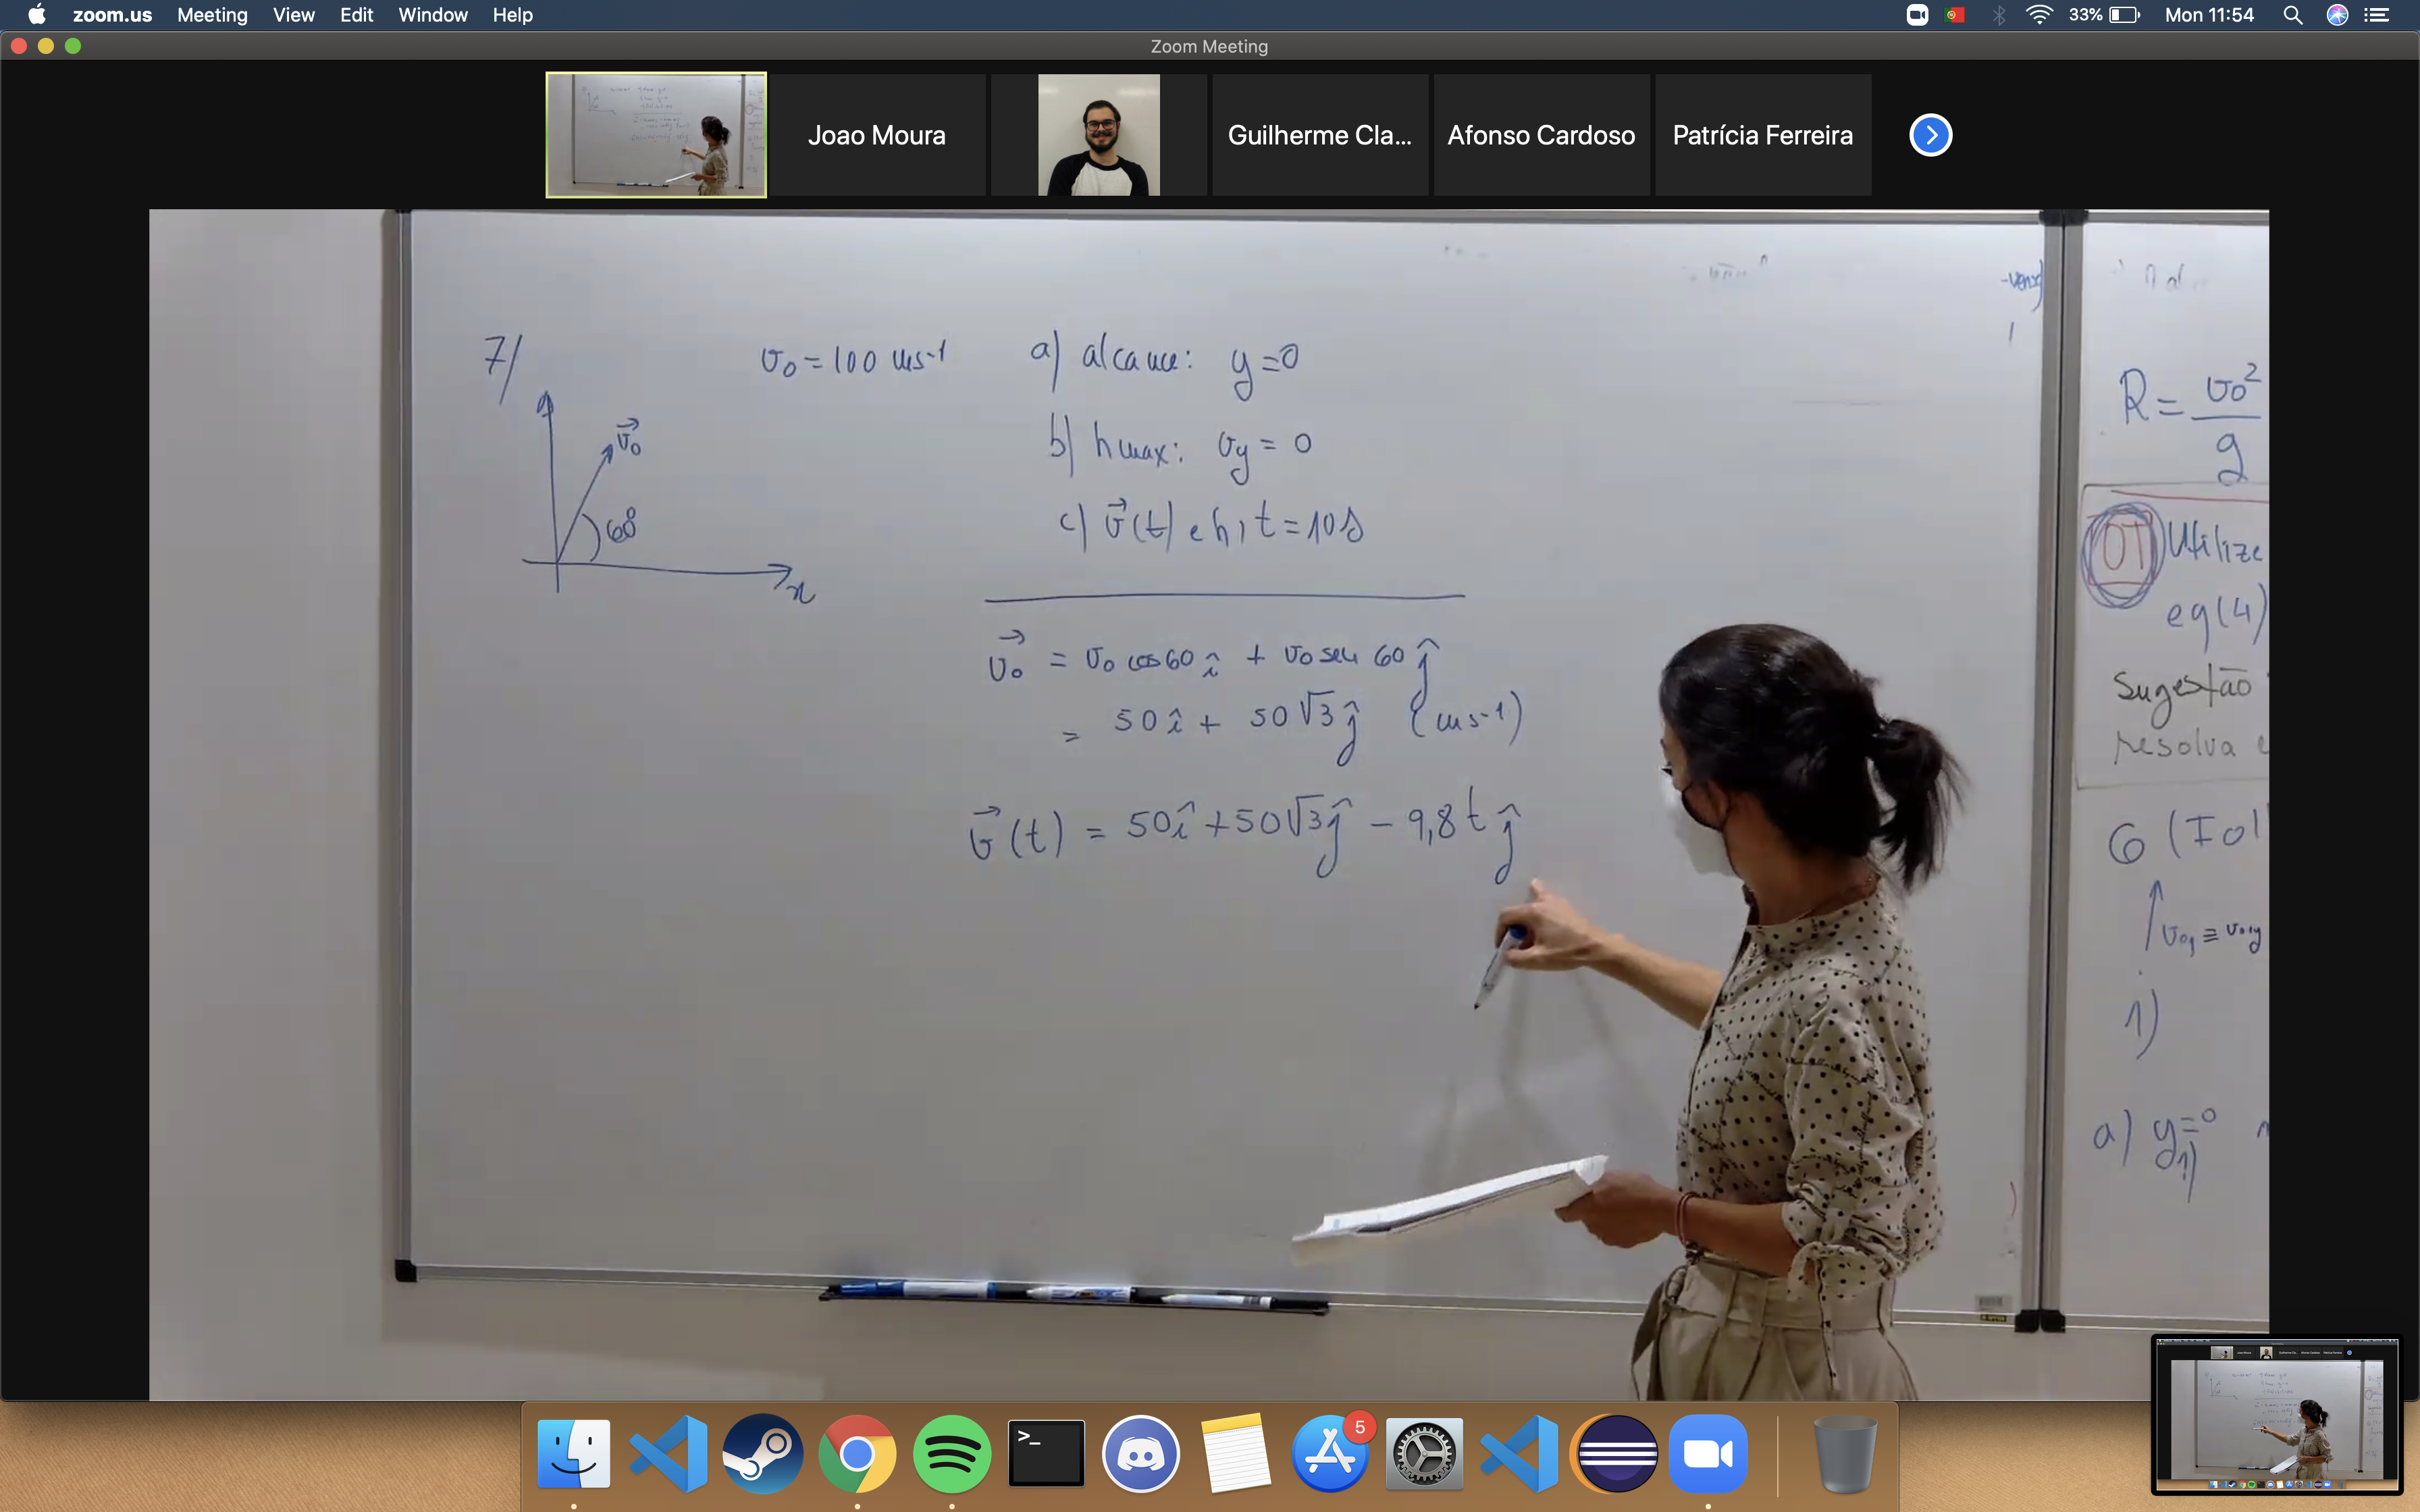 zoom.us Meeting View Edit Window Help 33% Mon 11:54
Zoom Meeting
Joao Moura
Guilherme Cla...
Afonso Cardoso
Patrícia Ferreira
7/
v₀ = 100 ms-1
v₀
60°
x
a) alcance: y=0
b) hmax: vy = 0
c) v(t) e h, t = 10s
v₀ = v₀ cos60 î + v₀ sen 60 ĵ
= 50 î + 50√3 ĵ (ms-1)
v(t) = 50î + 50√3ĵ - 9,8 t ĵ
R = v₀²
g
OT Utilize
eq(4)
Sugestão
resolva e
6 (Fol
1)
a) y=0
5